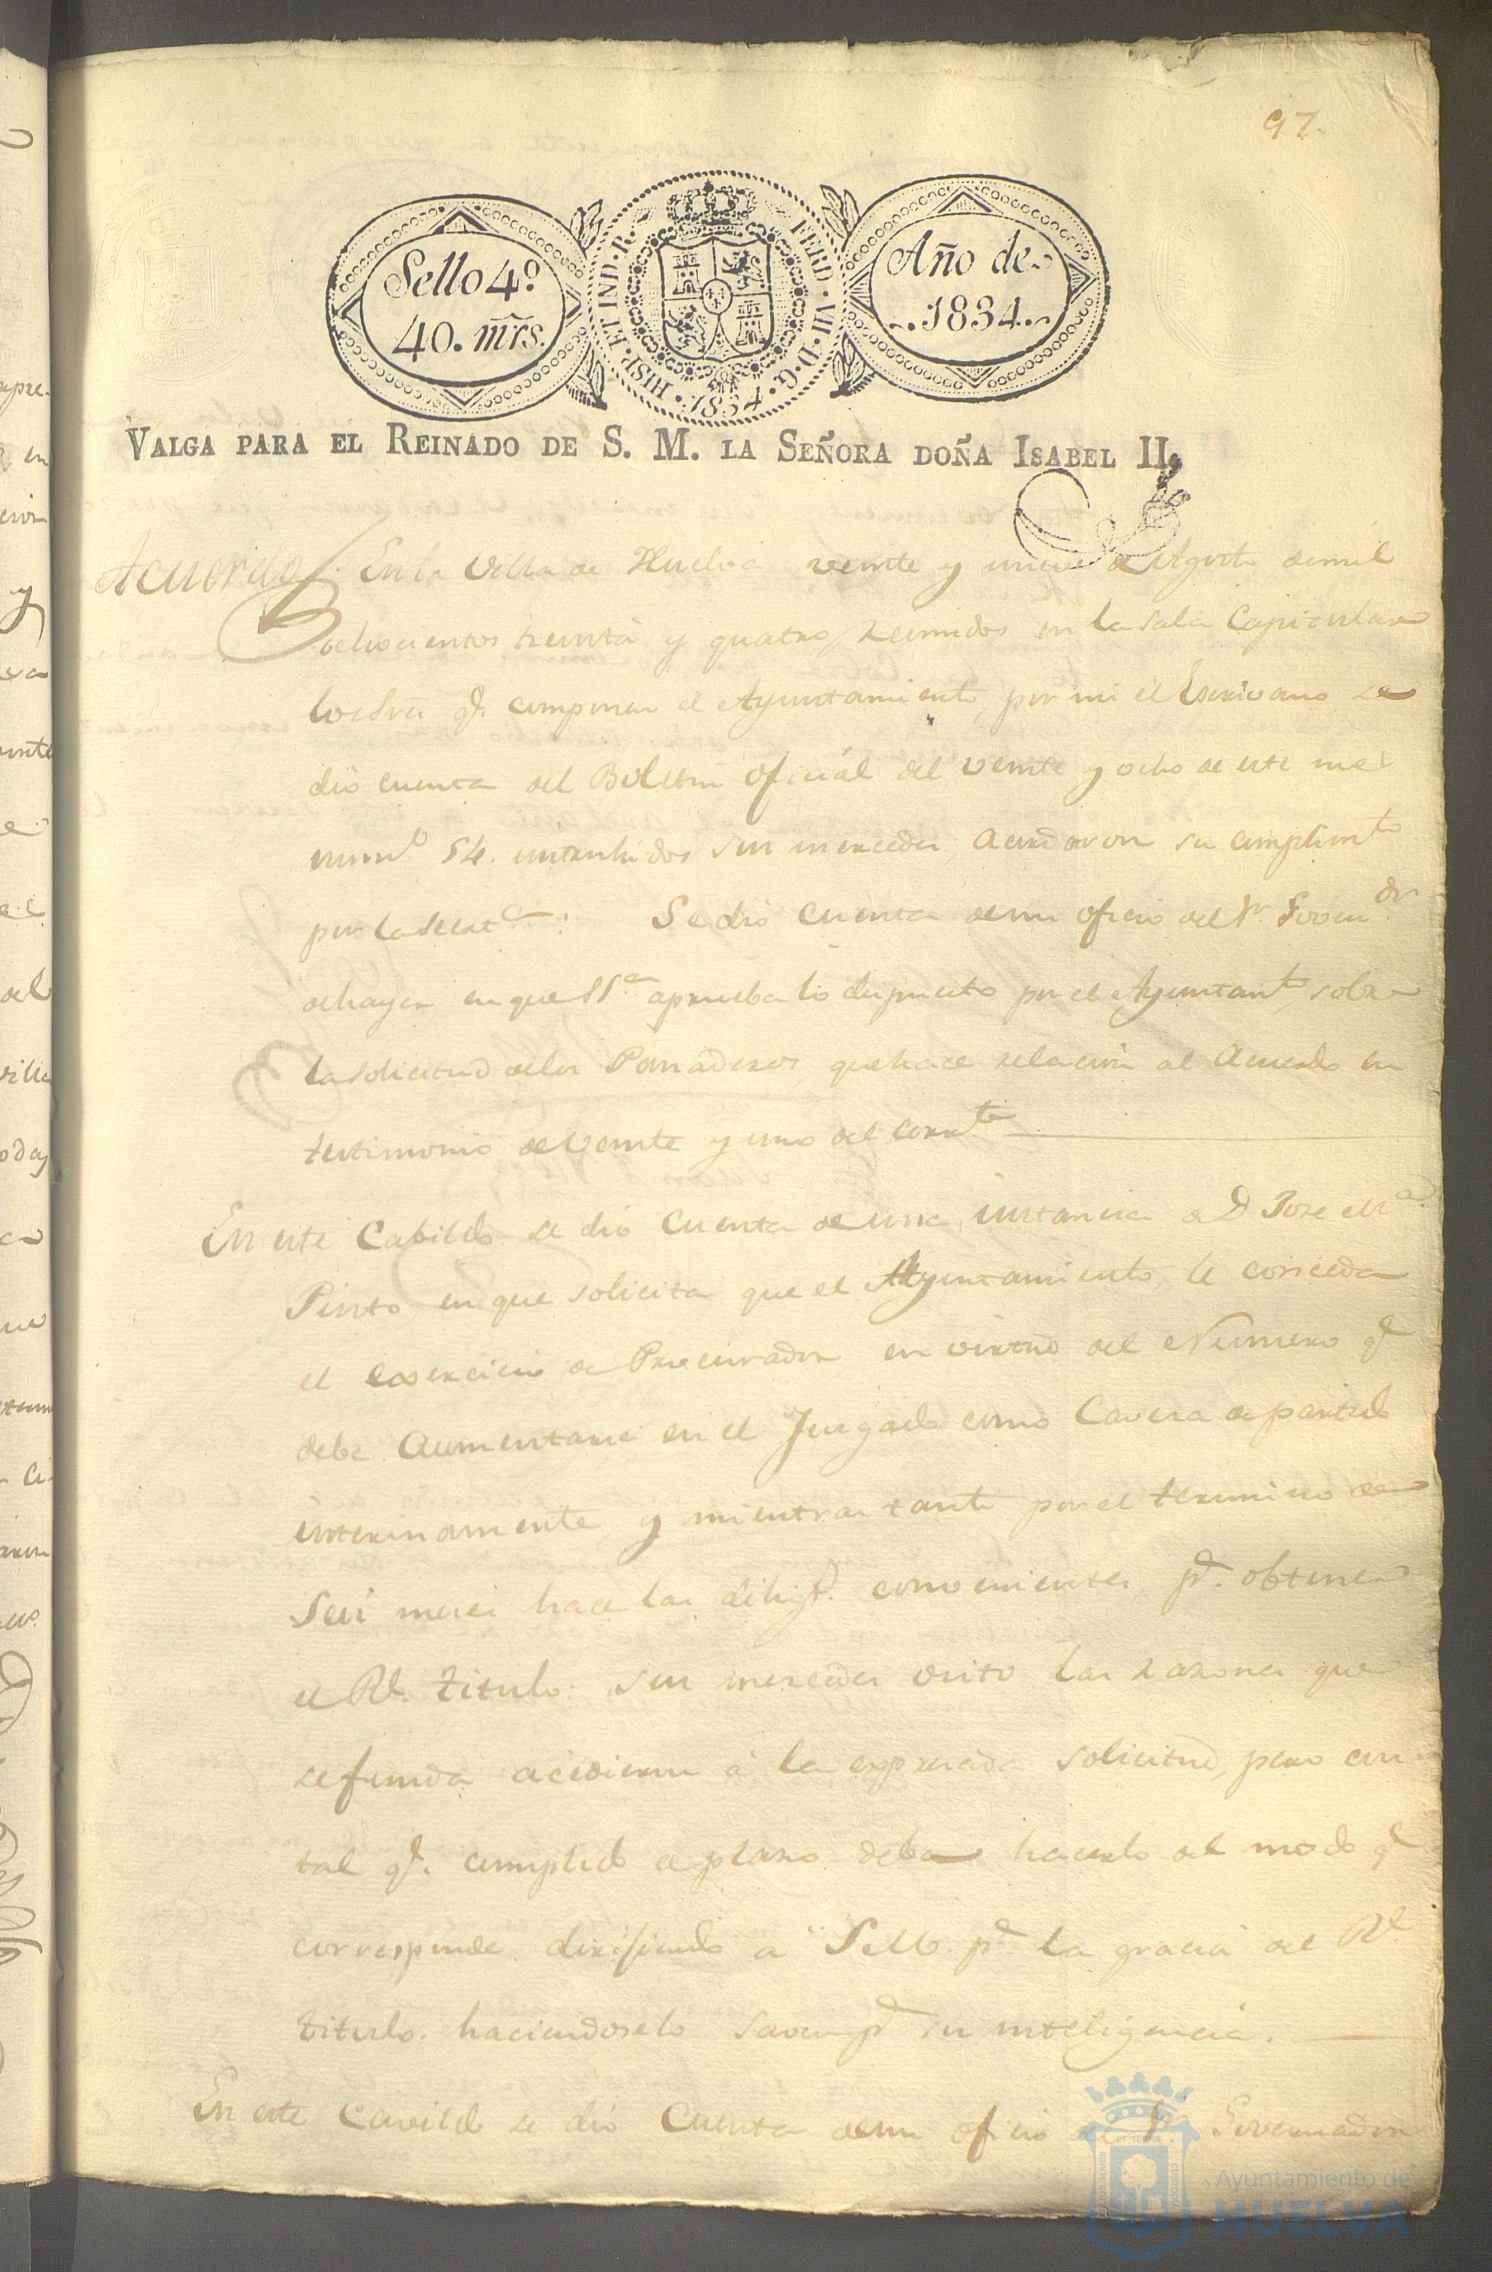 97.
Sello 4º
40. mrs.
HISP. ET IND. R. FERD. VII. D. G. 1834
Año de
1834
VALGA PARA EL REINADO DE S. M. LA SEÑORA DOÑA ISABEL II,
Acuerdo En la Villa de Huelva veinte y nueve de Agosto de mil
ochocientos treinta y quatro, reunidos en la sala Capitular
los Sres q.e componen el Ayuntamiento, por mi el Escrivano se
dio cuenta del Boletin oficiál del veinte y ocho de este mes
num.o 54. instruhidos sus mercedes, acordaron su cumplim.to
por la Secret.a Se dio cuenta de un oficio del Sr. Govern.or
de hayer en que SS.a aprueba lo dispuesto por el Ayuntam.to sobre
la solicitud de los Panaderos, que hace relacion al Acuerdo en
testimonio de veinte y uno del corr.te
En este Cabildo se dio cuenta de una instancia de D Jose M.a
Pinto, en que solicita que el Ayuntamiento, le conceda
el exercicio de Procurador en virtud del Numero q.e
debe aumentarse en el Juzgado como Caveza de partido
interinamente, y mientras tanto por el termino de
Seis meses hace las dilig.s convenientes p.a obtener
el Rl. titulo. Sus mercedes visto las razones que
se funda accedieron á la expresada solicitud, pero con
tal q.e cumplido el plazo deba hacerlo del modo q.e
corresponde dirijiendo a S.M. p.a la gracia del Rl.
titulo. haciendoselo saver p.a su inteligencia.
En este Cavildo se dio Cuenta de un oficio del Sr. Governador
Ayuntamiento de
HUELVA